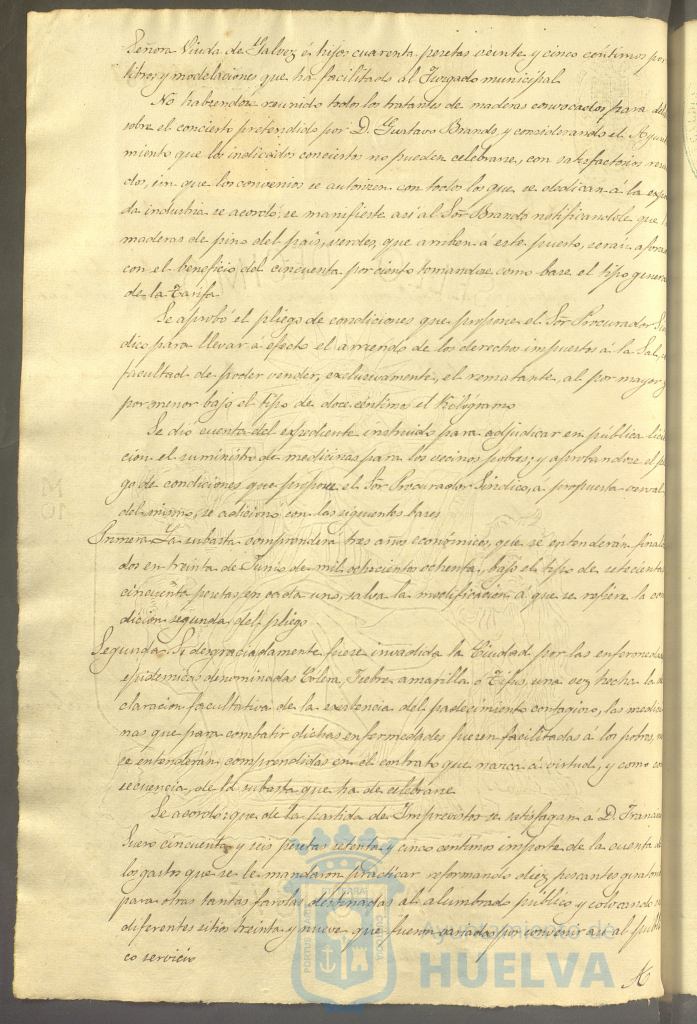 Señora Viuda de Galvez é hijos cuarenta pesetas veinte y cinco centimos por
libros y modelaciones que ha facilitado al Juzgado municipal.
No habiendose reunido todos los tratantes de maderas convocados para del
sobre el concierto pretendido por D. Gustavo Brandt y considerando el Ayunta
miento que los indicados conciertos no pueden celebrarse, con satisfactorios resu
dos, sin que los convenios se autorizen con todos los que se dedican a la expre
da industria se acordó: se manifieste asi al Sor. Brandt notificandole que l
maderas de pino del pais, verdes, que arriben á este puerto, serán aforad
con el beneficio del cincuenta por ciento tomandose como base el tipo genera
de la Tarifa.
Se aprobó el pliego de condiciones que propone el Sor. Procurador Sin
dico para llevar a efecto el arriendo de los derechos impuestos á la Sal, c
facultad de poder vender, exclusivamente, el rematante, al por mayor y
por menor bajo el tipo de doce centimos el Kilógramo
Se dió cuenta del expediente instruido para adjudicar en pública lici
cion el suministro de medicinas para los vecinos pobres; y aprobandose el pl
go de condiciones que propone el Sor. Procurador Sindico, á propuesta
del mismo, se adicionó con las siguientes bases
Primera La subasta comprenderá tres años económicos, que se entenderán finaliza
dos en treinta de Junio de mil ochocientos ochenta, bajo el tipo de setecientas
cincuenta pesetas, en cada uno, salva la modificacion á que se refiere la con
dicion segunda del pliego.
Segunda Si desgraciadamente fuese invadida la Ciudad por las enfermedad
epidémicas denominadas Colera, Fiebre amarilla ó Tifus, una vez hecha la de
claracion facultativa de la existencia del padecimiento contagioso, las medici
nas que para combatir dichas enfermedades fueren facilitadas a los pobres, no
se entenderán comprendidas en el contrato que nazca á virtud, y como con
secuencia, de la subasta que ha de celebrarse
Se acordó: que de la partida de Imprevistos se satisfagan á D. Francisco
Suero cincuenta y seis pesetas setenta y cinco centimos importe de la cuenta de
los gastos que se le mandaron practicar reformando diez pescantes giratorios
para otras tantas farolas destinadas al alumbrado publico y colocando en
diferentes sitios treinta y nueve que fueron variados por convenir asi al públi
co servicio
PORTUS MARIS ET TERRÆ CUSTODIA
Ayuntamiento de
HUELVA